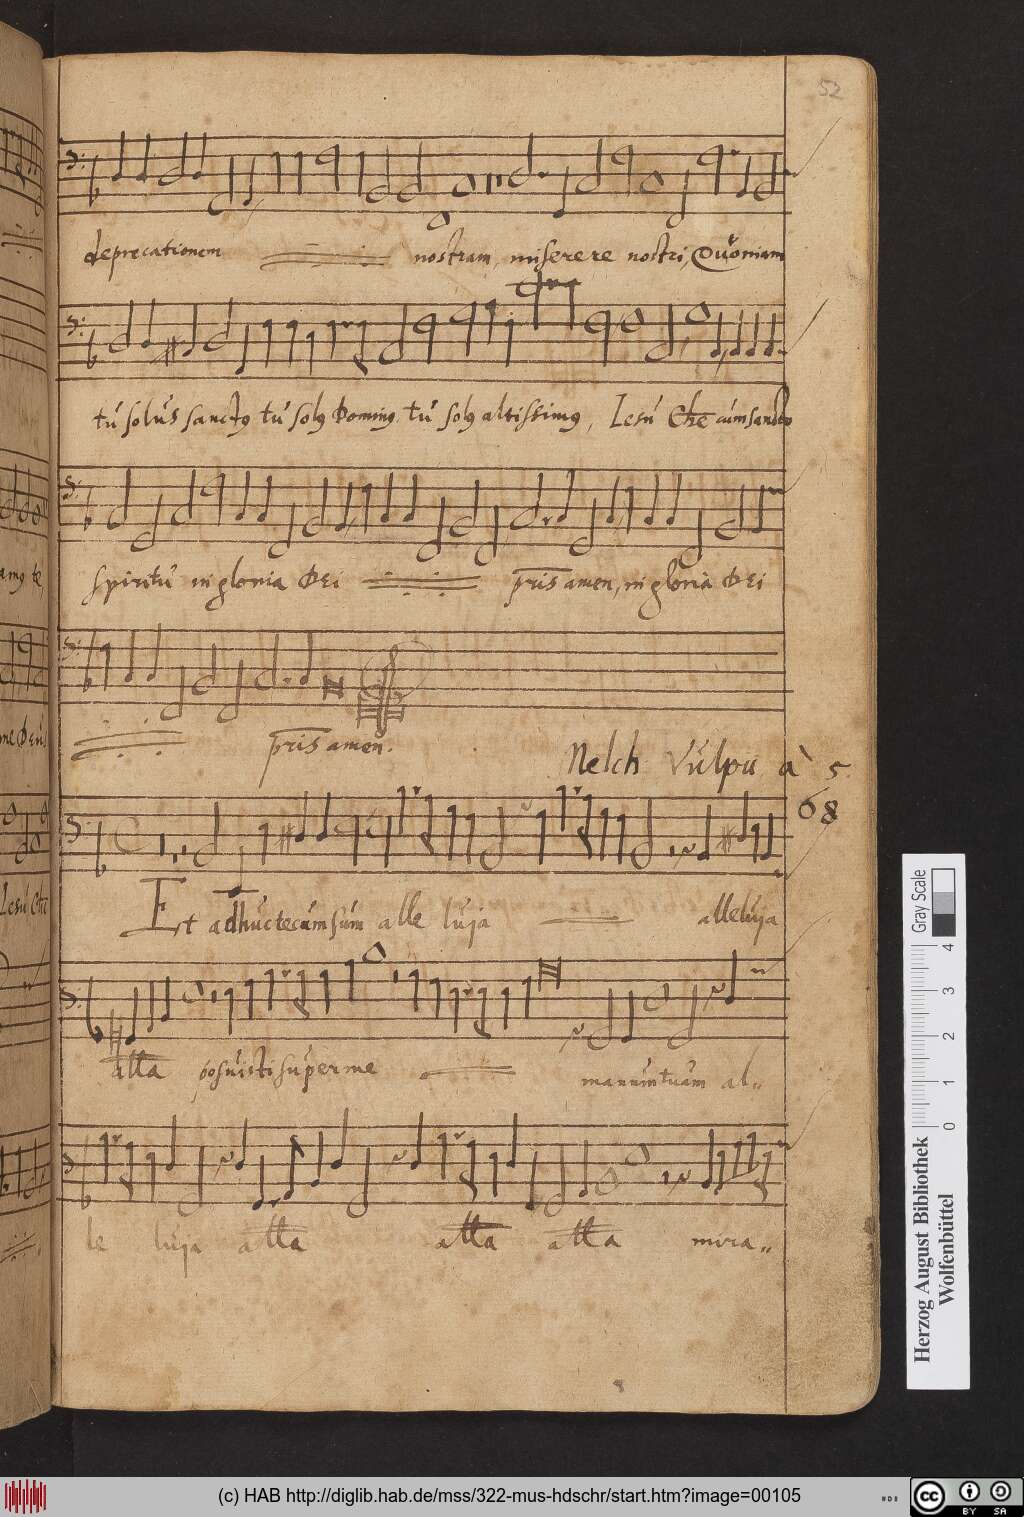 52
deprecationem nostram, miserere nostri, Quoniam
tú solús sanctꝯ tú solꝯ Dominꝯ tú solꝯ altissimꝯ, Iesú Chē cúm sancto
spiritú in gloria DEi pris amen, in gloria DEi
pris amen.
Melch Vúlpii à 5
68
Et adhúc tecúm súm alle lúja allelúja
alla posúisti súper me manúm túam al„
le lúja alla alla alla mira„
amꝯ te,
me Deús
Iesú Chē
Gray Scale
0 1 2 3 4
Herzog August Bibliothek
Wolfenbüttel
(c) HAB http://diglib.hab.de/mss/322-mus-hdschr/start.htm?image=00105
cc BY SA